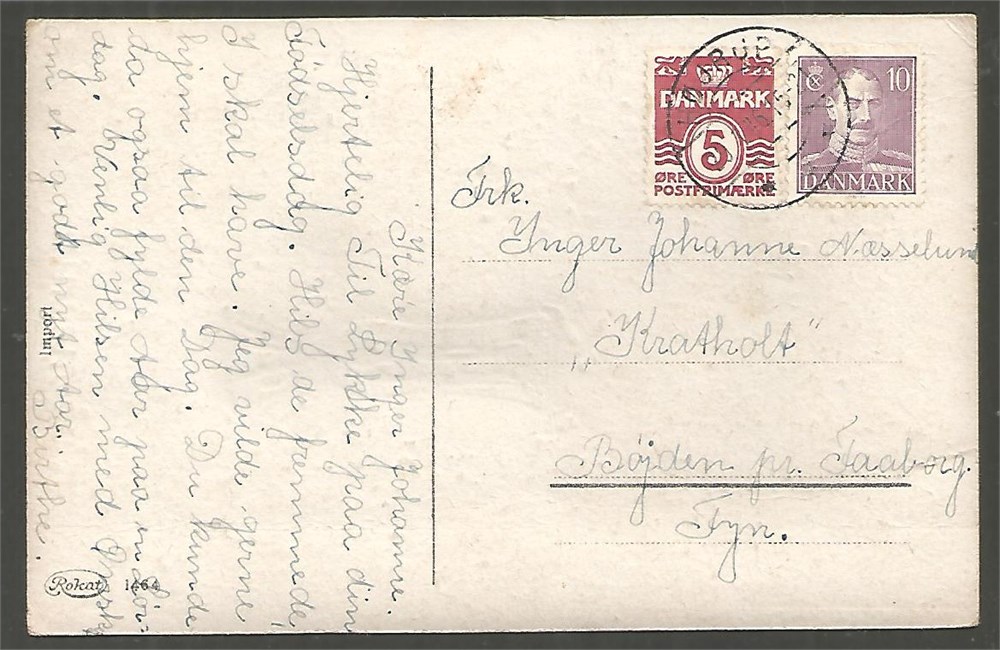 Kære Inger Johanne.
Hjertelig Til Lykke paa din
Fødselsdag. Hils de fremmede,
I skal have. Jeg vilde gerne
hjem til den Dag. Du kunde
da ogsaa fylde Aar paa en Lør-
dag. Venlig Hilsen med Ønske
om et godt nyt Aar.
Birthe.
Import
Rokat 1464
DANMARK
5
ØRE ØRE
POSTFRIMÆRKE
10
DANMARK
Frk.
Ynger Johanne Næsselund
„Kratholt"
Bøjden pr. Faaborg.
Fyn.